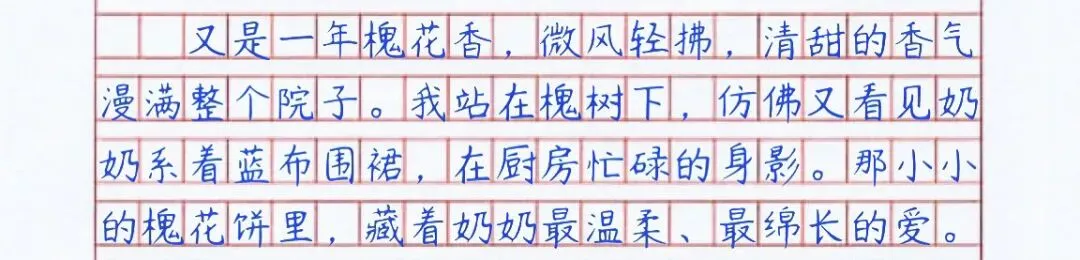 又是一年槐花香，微风轻拂，清甜的香气
漫满整个院子。我站在槐树下，仿佛又看见奶
奶系着蓝布围裙，在厨房忙碌的身影。那小小
的槐花饼里，藏着奶奶最温柔、最绵长的爱。